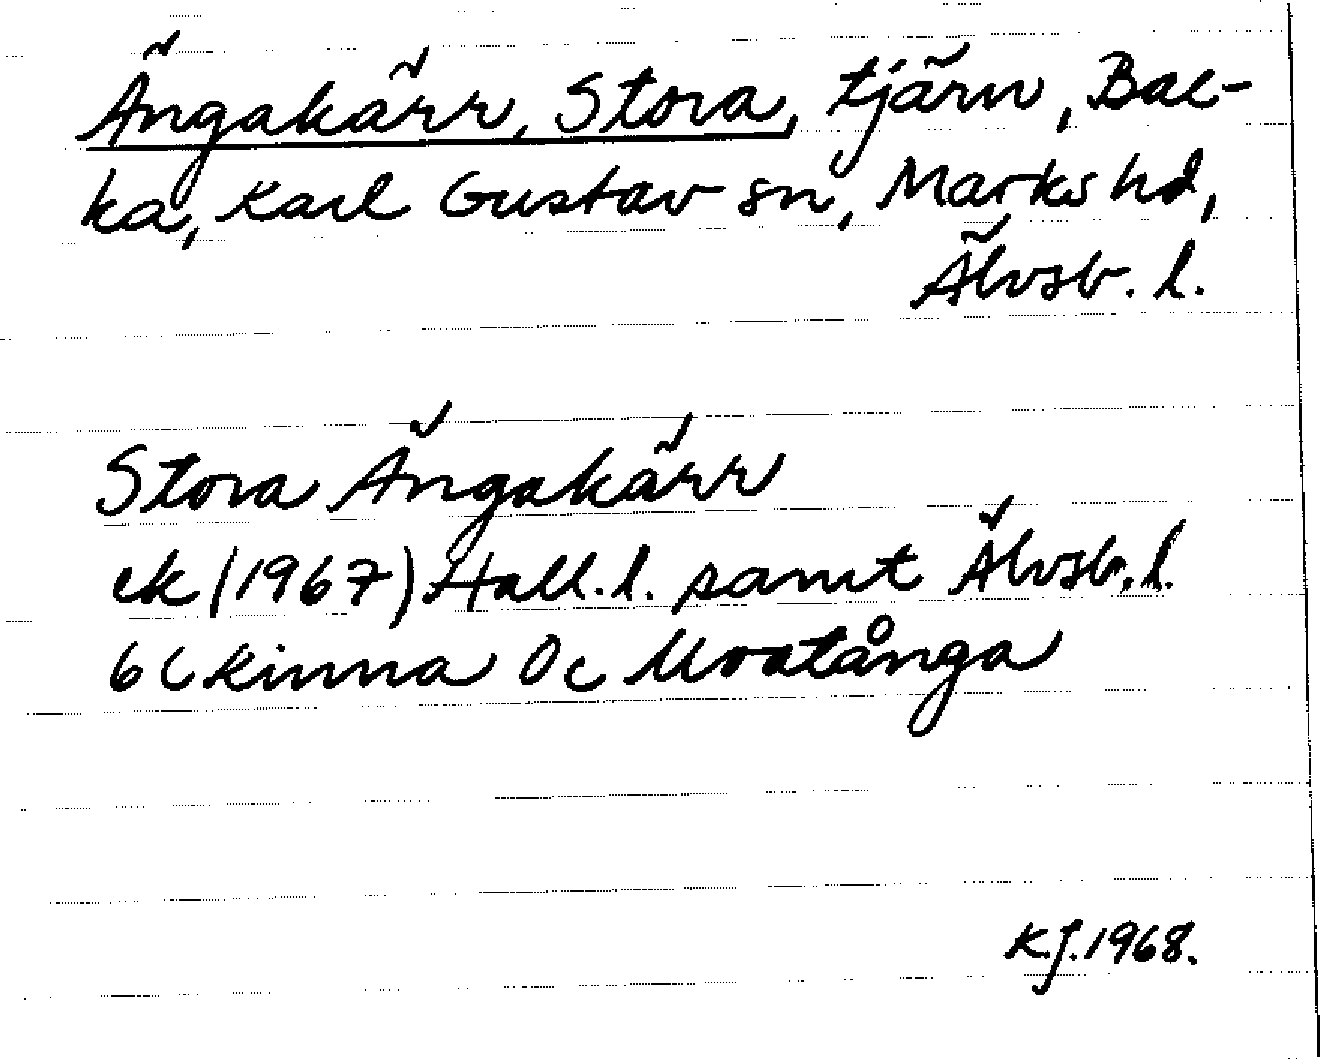 Ängakärr, Stora, tjärn, Bac-
ka, Karl Gustav sn, Marks hd,
Älvsb. l.
Stora Ängakärr
ek (1967) Hall. l. samt Älvsb. l.
6 C Kinna 0 c Mostånga
K.J. 1968.